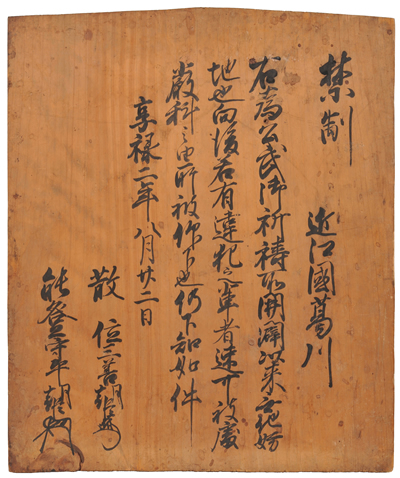 禁制　近江國葛川
右為公武御祈禱所開闢以来無犯妨
地也向後若有違犯之輩者速可被處
嚴科之由所被仰下也仍下知如件
享禄二年八月廿二日
散位三善朝臣
能登守平朝臣